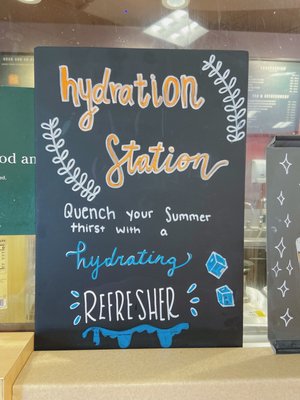 hydration
Station
Quench your Summer
thirst with a
hydrating
REFRESHER